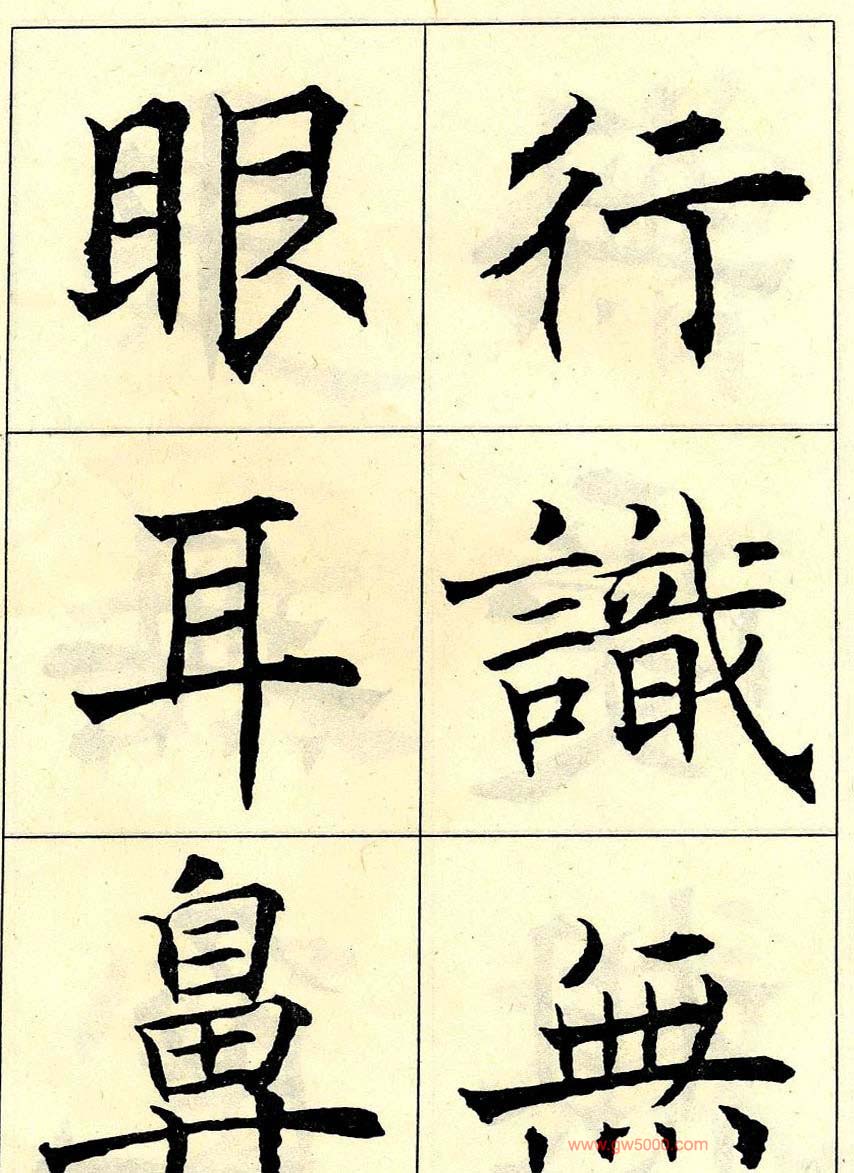 行識無
眼耳鼻
www.gw5000.com